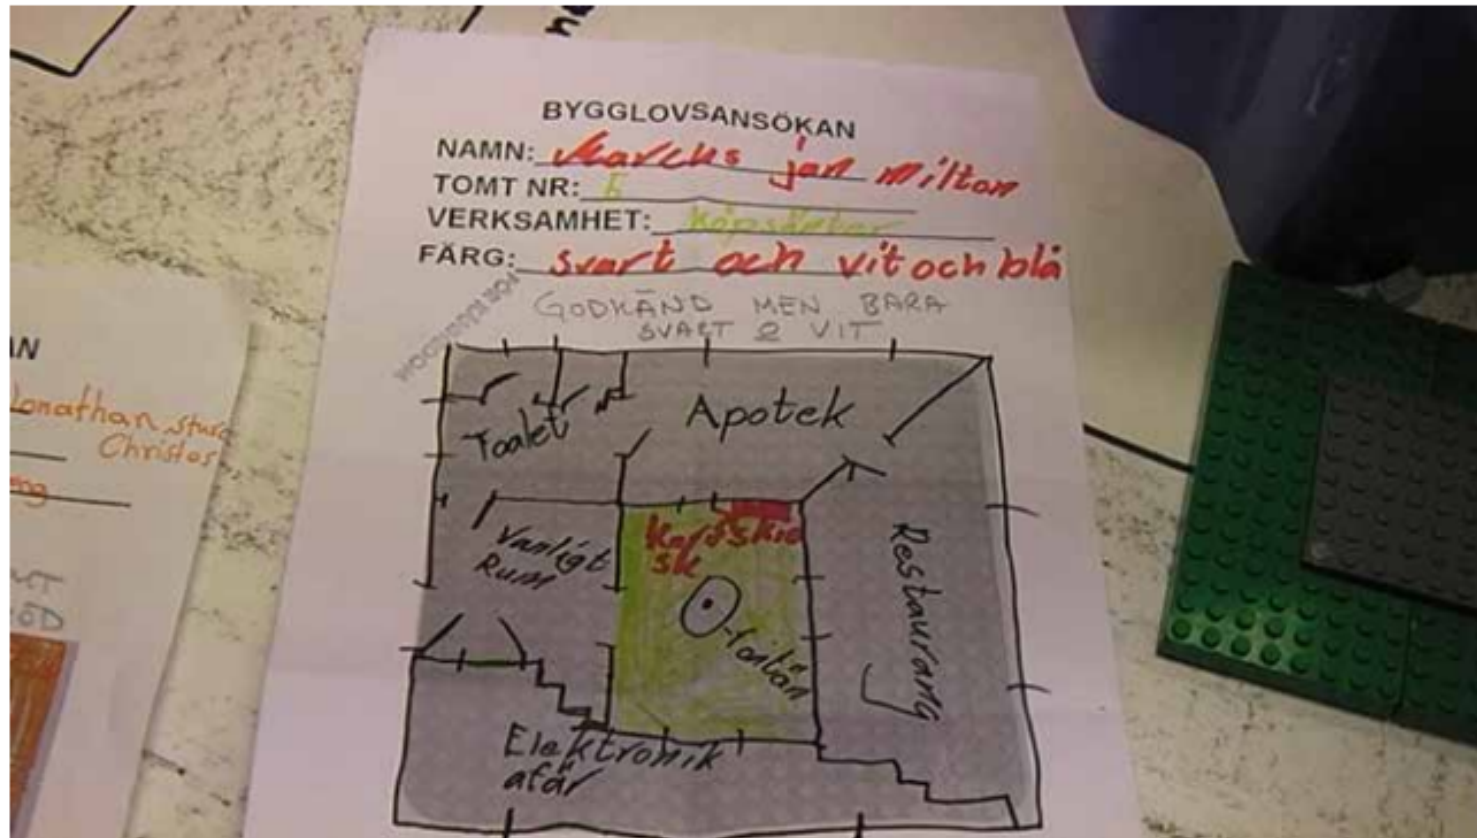 BYGGLOVSANSÖKAN
NAMN: Marcus jan Milton
TOMT NR:
VERKSAMHET:
FÄRG: svart och vit och blå
GODKÄND MEN BARA
SVART & VIT
Toalet
Apotek
Vanligt
Rum
Korvskio
sk
fontän
Restaurang
Elektronik
afär
AN
Jonathan
Christos